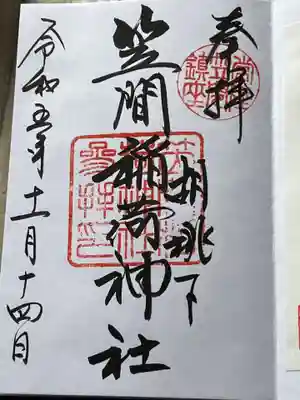 奉拝
胡桃下
笠間稲荷神社
令和五年十一月十四日